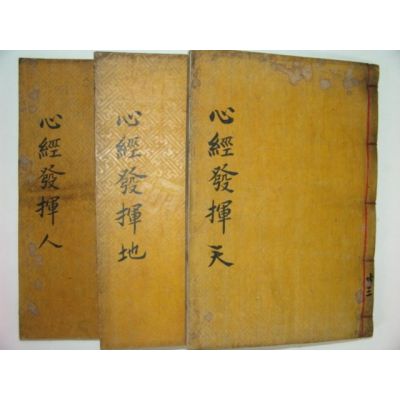 心經發揮天
心經發揮地
心經發揮人